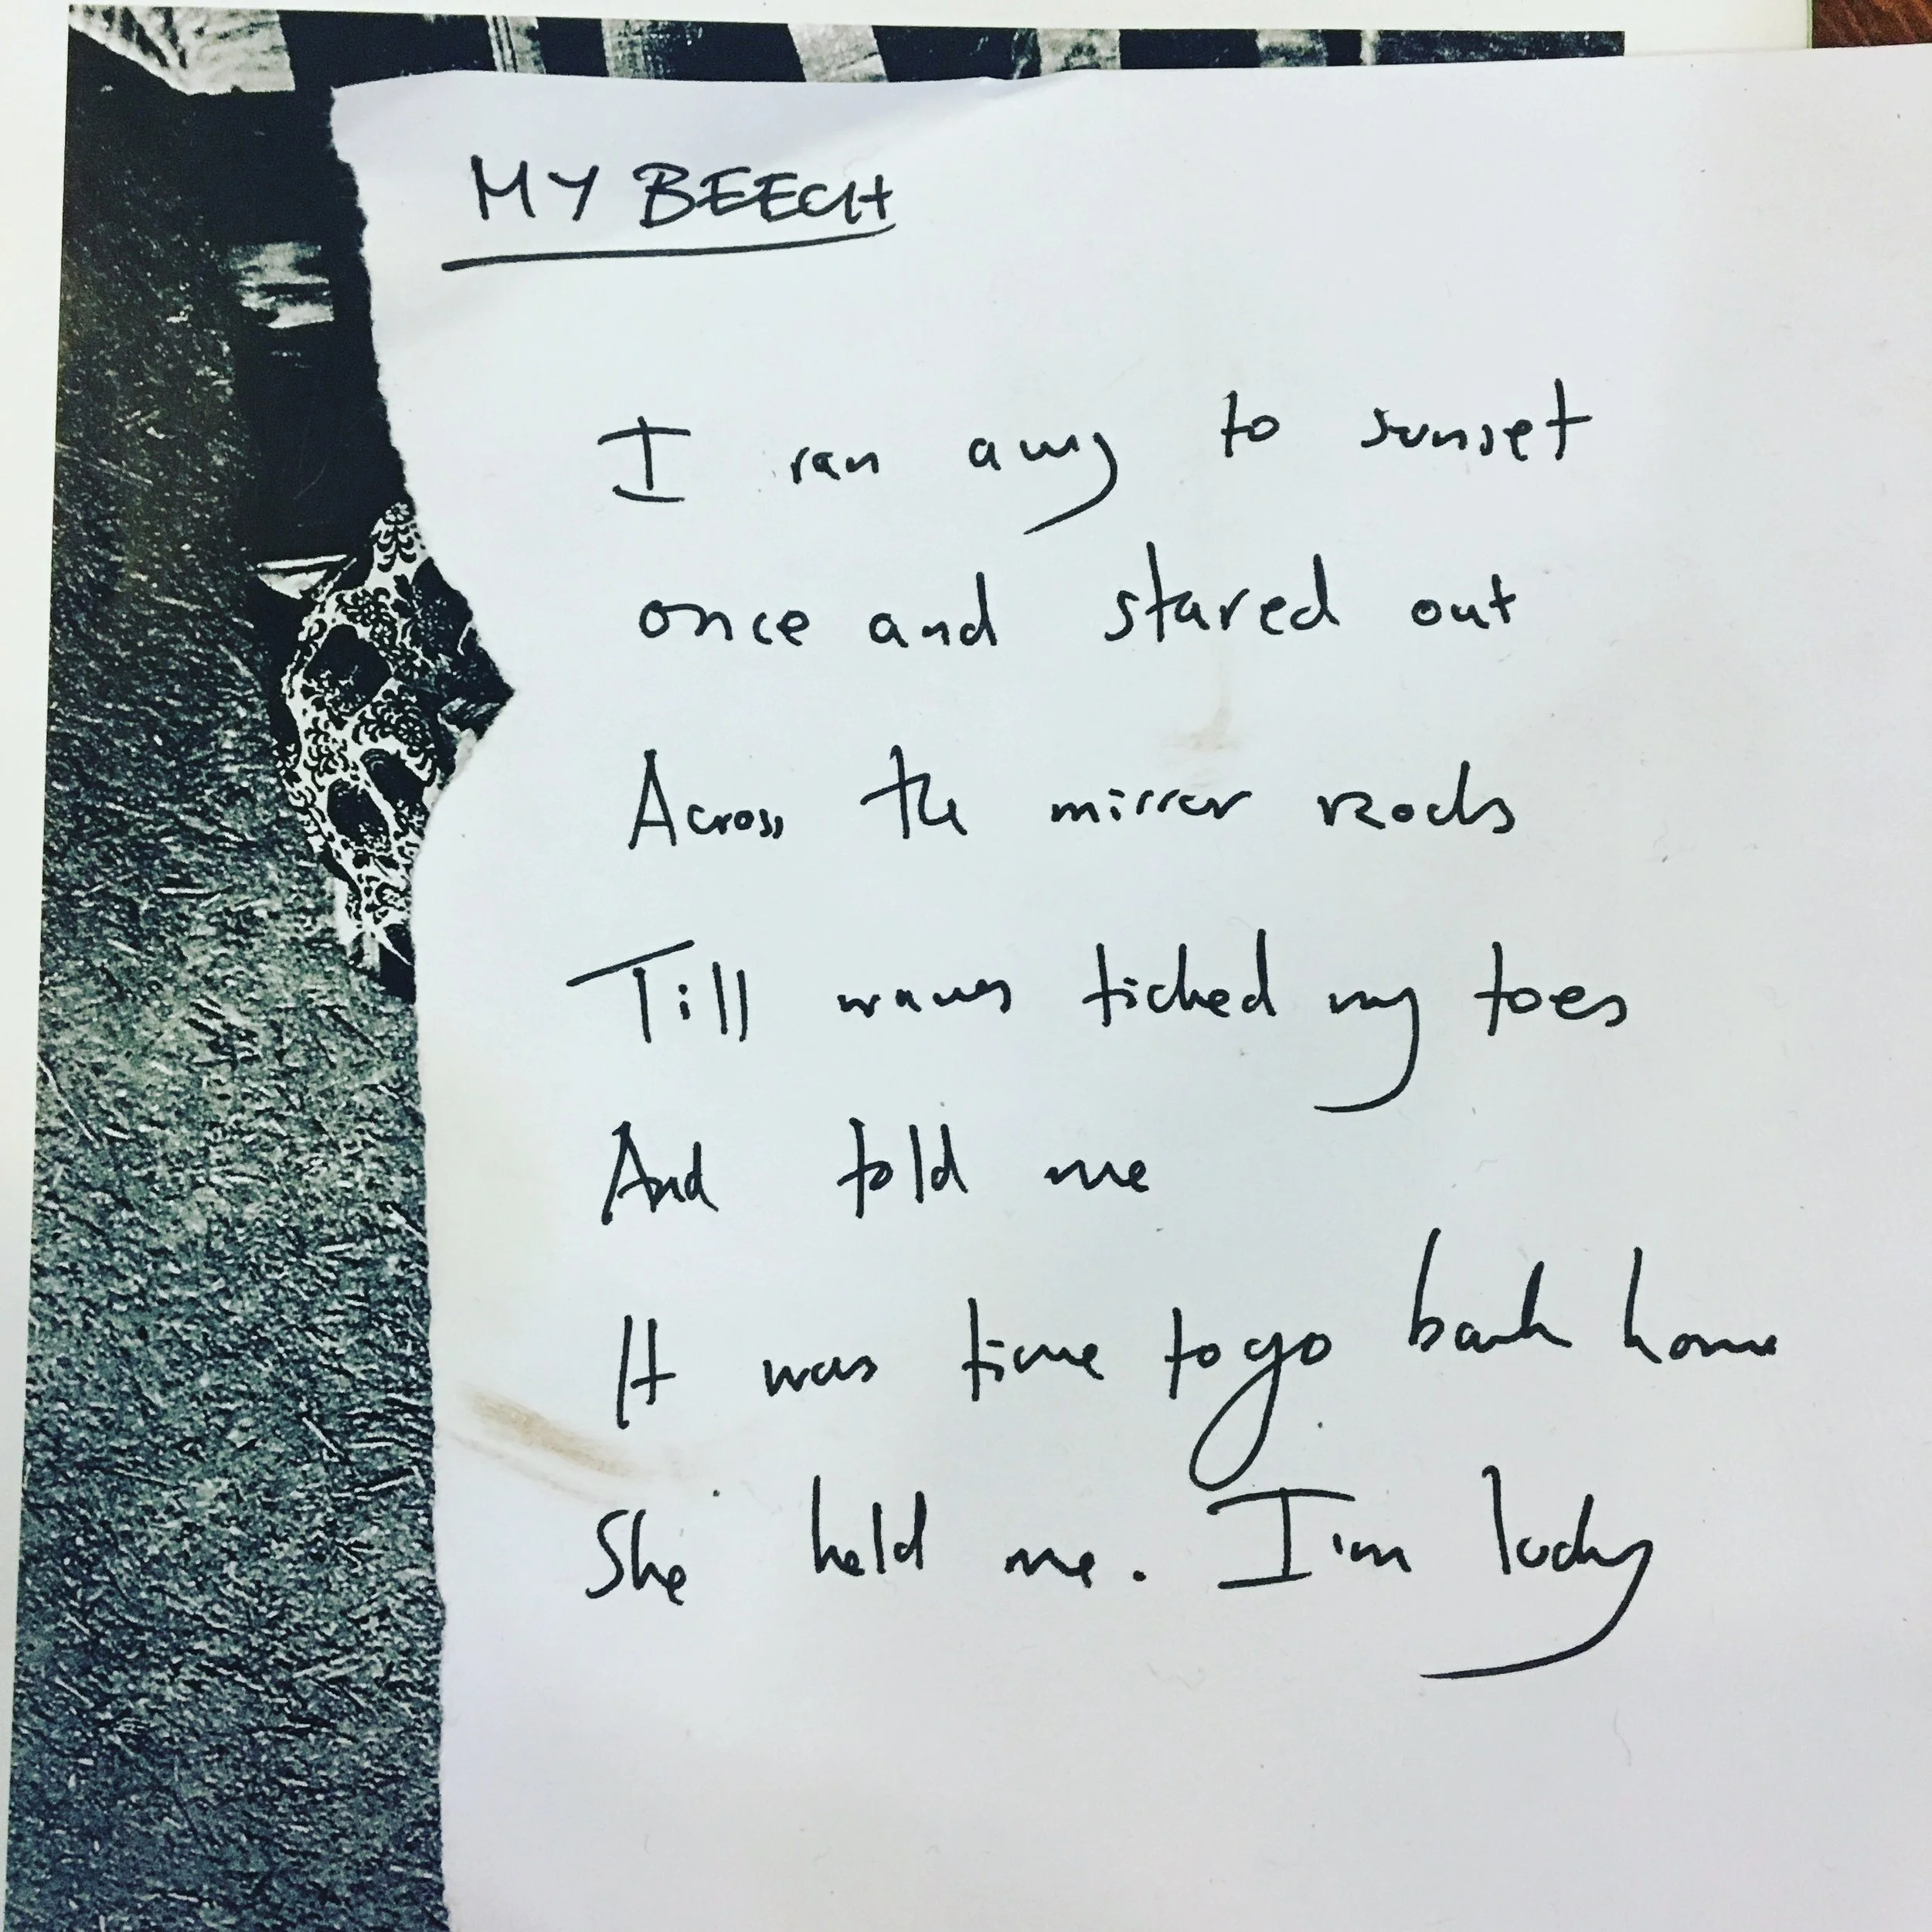 MY BEECH
I ran away to sunset
once and stared out
Across the mirror rocks
Till waves ticked my toes
And told me
It was time to go back home
She held me. I'm lucky